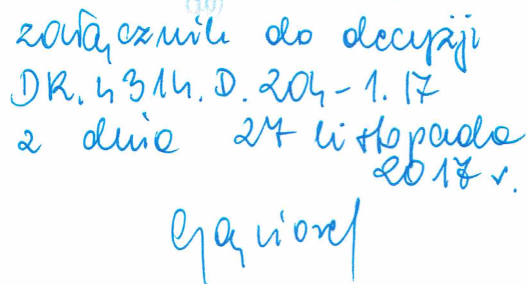 załącznik do decyzji
DR.4314.D.204-1.17
z dnia 27 listopada
2017 r.